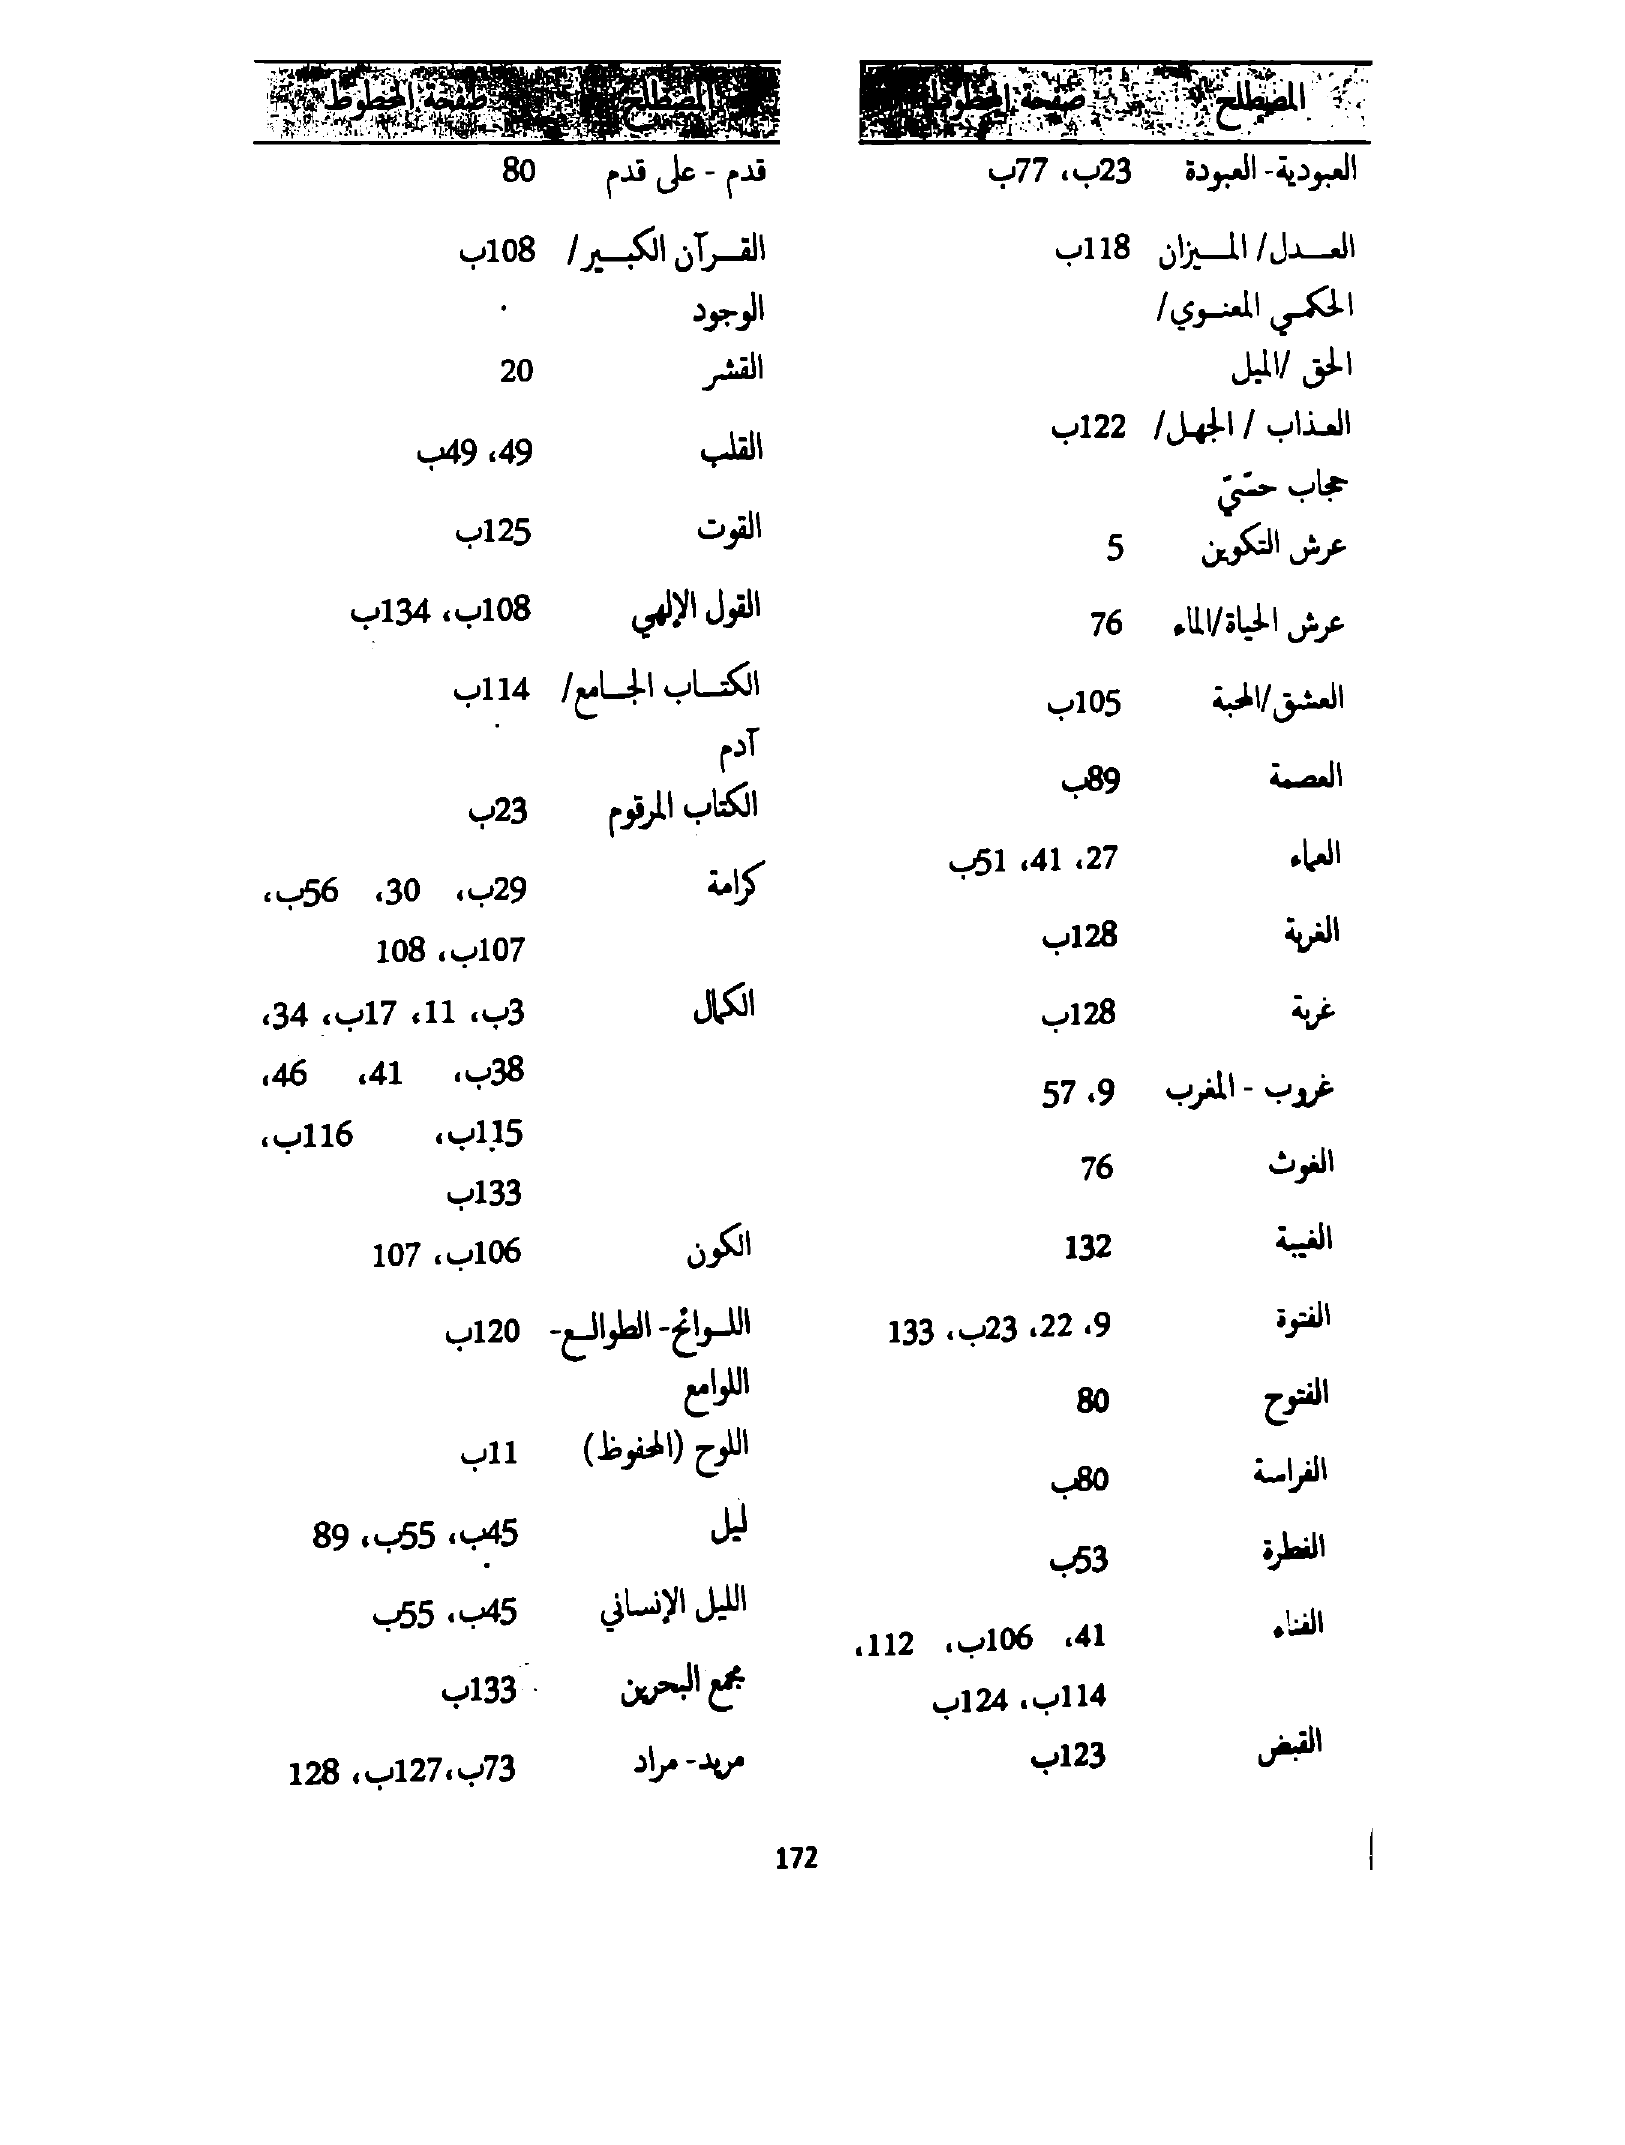 المصطلح صفحة المخطوط
العبودية- العبودة 23ب، 77ب
العدل/ الميزان 118ب
الحكمي المعنوي/
الحق /الميل
العذاب / الجهل/ 122ب
حجاب حسّيّ
عرش التكوين 5
عرش الحياة/الماء 76
العشق/المحبة 105ب
العصمة 89ب
العماء 27، 41، 51ب
الغربة 128ب
غربة 128ب
غروب - المغرب 9، 57
الغوث 76
الغيبة 132
الفتوة 9، 22، 23ب، 133
الفتوح 80
الفراسة 80ب
الفطرة 53ب
الفناء 41، 106ب، 112،
114ب، 124ب
القبض 123ب
المصطلح صفحة المخطوط
قدم - على قدم 80
القرآن الكبير/ 108ب
الوجود
القشر 20
القلب 49، 49ب
القوت 125ب
القول الإلهي 108ب، 134ب
الكتاب الجامع/ 114ب
آدم
الكتاب المرقوم 23ب
كرامة 29ب، 30، 56ب،
107ب، 108
الكمال 3ب، 11، 17ب، 34،
38ب، 41، 46،
115ب، 116ب،
133ب
الكون 106ب، 107
اللوائح- الطوالع- 120ب
اللوامع
اللوح (المحفوظ) 11ب
ليل 45ب، 55ب، 89
الليل الإنساني 45ب، 55ب
مجمع البحرين 133ب
مريد- مراد 73ب،127ب، 128
172